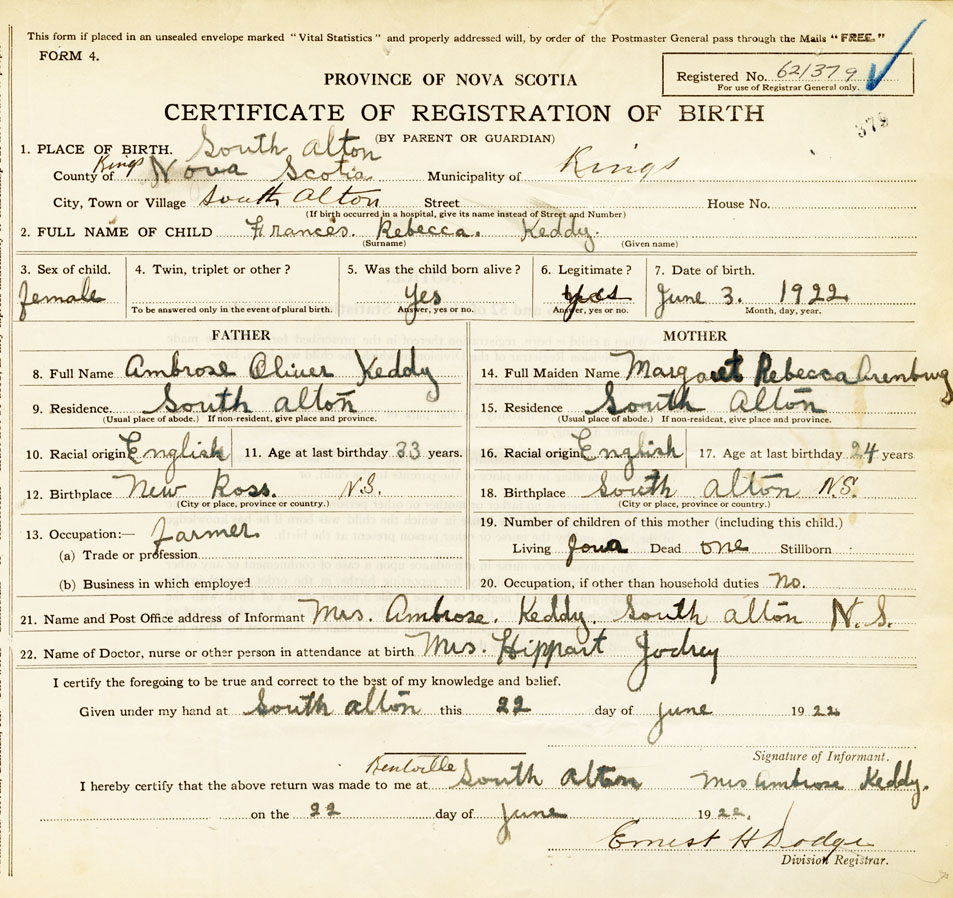 This form if placed in an unsealed envelope marked "Vital Statistics" and properly addressed will, by order of the Postmaster General pass through the Mails "FREE."
FORM 4.
PROVINCE OF NOVA SCOTIA
Registered No. 621379
For use of Registrar General only.
CERTIFICATE OF REGISTRATION OF BIRTH
379
(BY PARENT OR GUARDIAN)
1. PLACE OF BIRTH. South Alton
County of Kings Nova Scotia Municipality of Kings
City, Town or Village South Alton Street House No.
(If birth occurred in a hospital, give its name instead of Street and Number)
2. FULL NAME OF CHILD Frances. Rebecca. Keddy.
(Surname) (Given name)
3. Sex of child. 4. Twin, triplet or other? 5. Was the child born alive? 6. Legitimate? 7. Date of birth.
female Yes Yes June 3. 1922
To be answered only in the event of plural birth. Answer, yes or no. Answer, yes or no. Month, day, year.
FATHER MOTHER
8. Full Name Ambrose Oliver Keddy 14. Full Maiden Name Margaret Rebecca Arenburg
9. Residence. South Alton 15. Residence South Alton
(Usual place of abode.) If non-resident, give place and province. (Usual place of abode.) If non-resident, give place and province.
10. Racial origin English 11. Age at last birthday 33 years. 16. Racial origin English 17. Age at last birthday 24 years
12. Birthplace New Ross. N.S. 18. Birthplace South Alton N.S.
(City or place, province or country.) (City or place, province or country.)
13. Occupation:— Farmer. 19. Number of children of this mother (including this child.)
(a) Trade or profession Living Dead one Stillborn
(b) Business in which employed 20. Occupation, if other than household duties no.
21. Name and Post Office address of Informant Mrs. Ambrose. Keddy. South Alton N.S.
22. Name of Doctor, nurse or other person in attendance at birth Mrs. Hippart Jodrey
I certify the foregoing to be true and correct to the best of my knowledge and belief.
Given under my hand at South Alton this 22 day of June 1922
Signature of Informant.
Kentville
I hereby certify that the above return was made to me at South Alton Mrs Ambrose Keddy.
on the 22 day of June 1922.
Ernest H Dodge
Division Registrar.